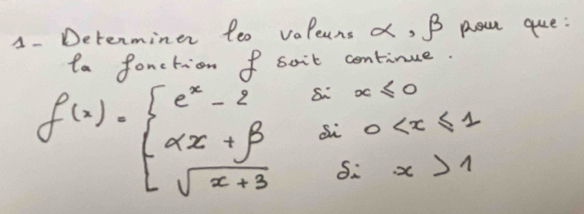 1- Determiner les valeurs α, β pour que:
la fonction f soit continue.
f(x) = { e^x - 2 si x ≤ 0
αx + β si 0 < x ≤ 1
√(x + 3) si x > 1